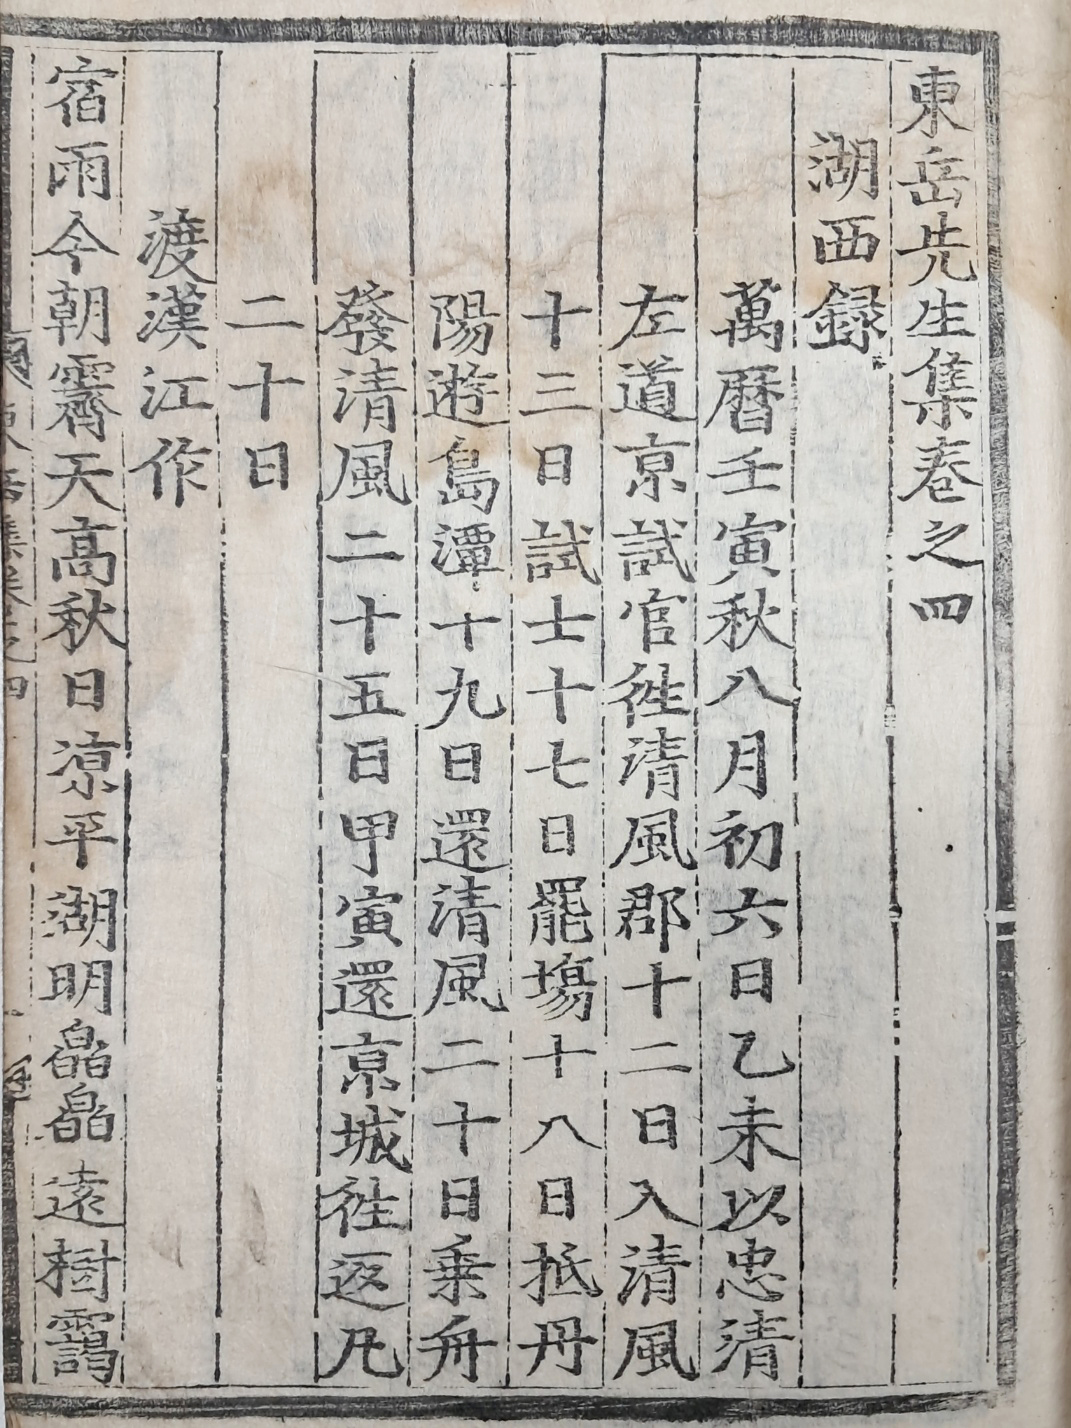 東岳先生集卷之四
湖西録
萬曆壬寅秋八月初六日乙未以忠清
左道京試官徃清風郡十二日入清風
十三日試士十七日罷塲十八日抵丹
陽遊島潭十九日還清風二十日乗舟
發清風二十五日甲寅還京城徃返凡
二十日
渡漢江作
宿雨今朝霽天高秋日凉平湖明皛皛遠樹靄